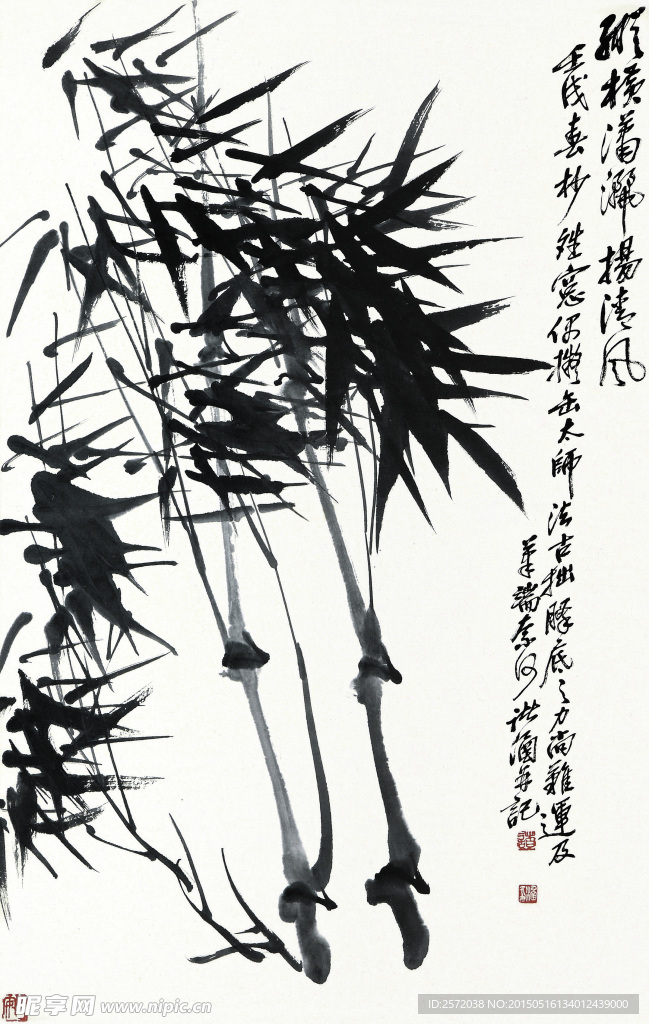 縱橫瀟灑揚清風
壬戌春抄 窓偶擬缶太師法古拙 底之力尚難運及
筆端奈何 蒲并記
昵享网 www.nipic.cn
ID:2572038 NO:20150516134012439000